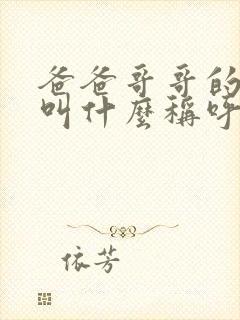 爸爸哥哥的
叫什麼稱呼
依芳